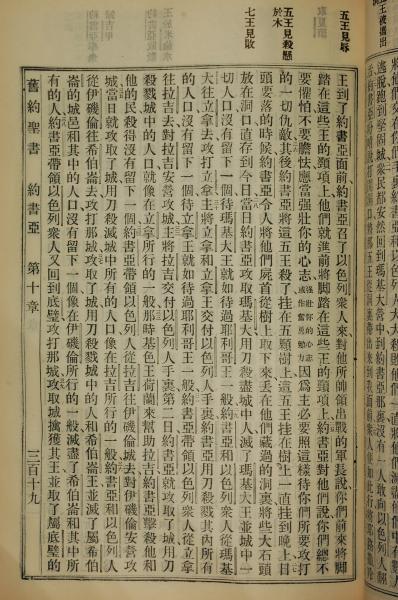 五王見辱
五王見殺懸
於木
七王見敗
王到了約書亞面前約書亞召了以色列衆人來對他所帥領出戰的軍長說你們前來將脚
踏在這些王的頸項上他們就進前將脚踏在這些王的頸項上約書亞對他們說你們總不
要懼怕不要膽怯應當強壯你的心志強壯你的心志或作奮勇勉力因爲主必要照這樣待你們所要攻打
的一切仇敵其後約書亞將這五王殺了挂在五顆樹上這五王挂在樹上一直挂到晚上日
頭要落的時候約書亞令人將他們屍首從樹上取下來丢在他們藏過的洞裏將些大石頭
放在洞口直存到今日當日約書亞攻取瑪基大用刀殺盡城中人滅了瑪基大王並城中一
切人口沒有留下一個待瑪基大王就如待過耶利哥王一般約書亞和以色列衆人從瑪基
大往立拿去攻打立拿主將立拿和立拿王交付以色列人手裏約書亞用刀殺戮其內所有
的人口沒有留下一個待立拿王就如待過耶利哥王一般約書亞帶領以色列衆人從立拿
往拉吉去對拉吉安營攻城主將拉吉交付以色列人手裏第二日約書亞就攻取了城用刀
殺戮城中的人口就像在立拿所行的一般那時基色王荷蘭來幫助拉吉約書亞擊殺他和
他的民殺得沒有留下一個約書亞帶領以色列人從拉吉往伊磯倫城去對伊磯倫安營攻
城當日就攻取了城用刀殺滅城中所有的人口像在拉吉所行的一般約書亞和以色列人
從伊磯倫往希伯崙去攻打那城攻取了城用刀殺戮城中的人和希伯崙王並滅了屬希伯
崙的城邑和其中的人口沒有留下一個像在伊磯倫所行的一般滅盡了希伯崙和其中所
有的人約書亞帶領以色列衆人又回到底壁攻打那城攻取城擒獲其王並取了屬底壁的
舊約聖書 約書亞 第十章 三百十九